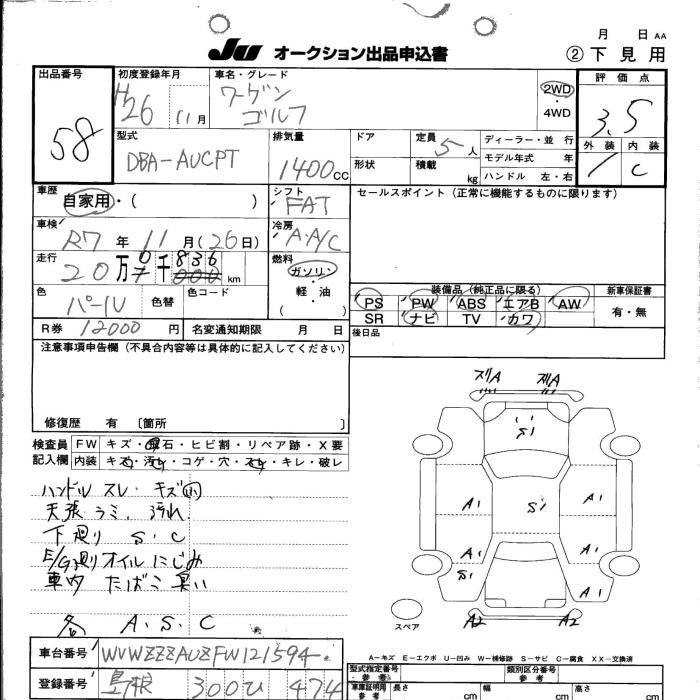 月 日 AA
JU オークション出品申込書
② 下見用
出品番号 58
初度登録年月 H26 11月
車名・グレード ワーゲン ゴルフ
2WD・4WD
評価点 3.5
外装 内装 C
型式 DBA-AUCPT
排気量 1400CC
ドア
形状
定員 5人
積載 kg
ディーラー・並行
モデル年式 年
ハンドル 左・右
車歴 自家用・( )
シフト FAT
セールスポイント (正常に機能するものに限ります)
車検 R7年 11月(26日)
冷房 A.A/C
走行 20万 6千 836 km
燃料 ガソリン・軽油 ( )
色 パール
色替
色コード
装備品 (純正品に限る)
PS PW ABS エアB AW
SR ナビ TV カワ
新車保証書 有・無
R券 12000円
名変通知期限 月 日
後日品
注意事項申告欄(不具合内容等は具体的に記入してください)
修復歴 有 〔箇所 〕
検査員記入欄
FW キズ・飛石・ヒビ割・リペア跡・X要
内装 キズ・汚れ・コゲ・穴・スレ・キレ・破レ
ハンドル スレ・キズ小
天張 ラミ、汚れ
下廻り S・C
E/G廻りオイルにじみ
車内 たばこ臭い
各 A.S.C
ズリA ズリA
S1
A1 S1 A1
A1 A1
S1 A1
A2 A2
スペア
A-キズ E-エクボ U-凹み W-補修跡 S-サビ C-腐食 XX-交換済
車台番号 WVWZZZAUZFW121594
型式指定番号 参考
類別区分番号 参考
登録番号 島根 300ひ 474
車庫証明用 参考
長さ cm
幅 cm
高さ cm